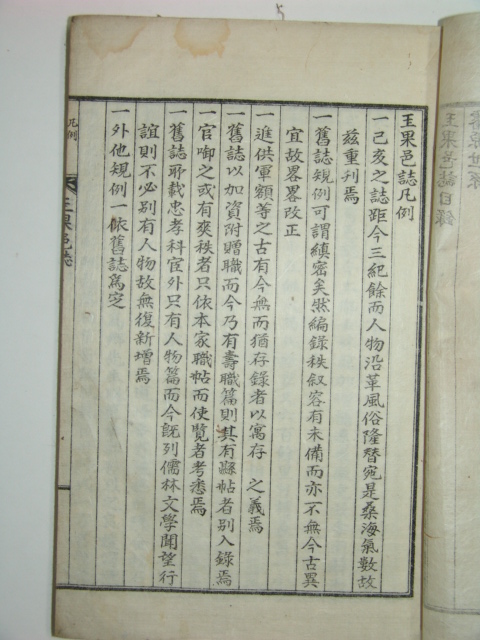 玉果邑誌凡例
一己亥之誌距今三紀餘而人物沿革風俗隆替宛是桑海氣數故
玆重刋焉
一舊誌規例可謂縝密矣然編錄秩叙容有未備而亦不無今古異
宜故畧畧改正
一進供軍額等之古有今無而猶存錄者以寓存 之義焉
舊誌以加資附贈職而今乃有壽職篇則其有繇帖者別入錄焉
一官啣之或有爽秩者只依本家職帖而使覽者考悉焉
一舊誌所載忠孝科宦外只有人物篇而今旣列儒林文學聞望行
誼則不必別有人物故無復新增焉
一外他規例一依舊誌爲定
凡例
玉果邑誌
玉果邑誌目錄